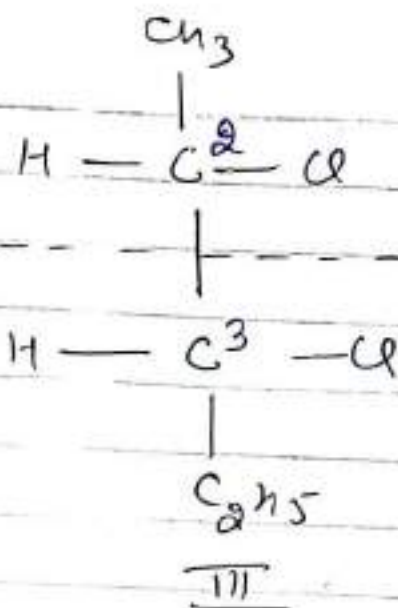 CH3
H — C2 — Cl
H — C3 — Cl
C2H5
III